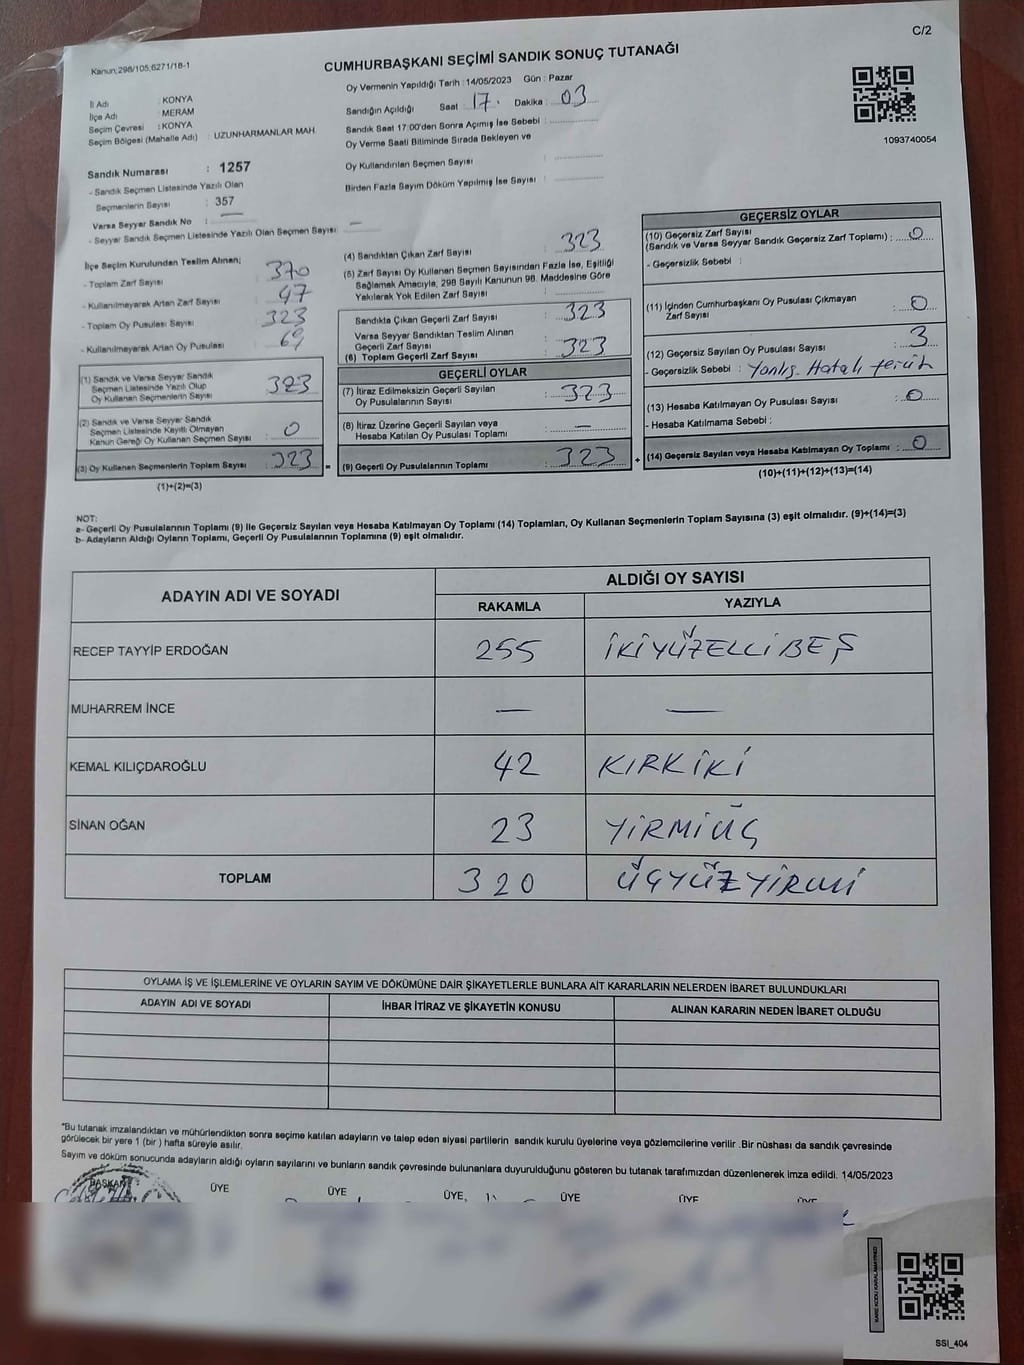 C/2
Kanun;298/105,6271/18-1
CUMHURBAŞKANI SEÇİMİ SANDIK SONUÇ TUTANAĞI
Oy Vermenin Yapıldığı Tarih : 14/05/2023 Gün : Pazar
İl Adı : KONYA
İlçe Adı : MERAM
Seçim Çevresi : KONYA
Seçim Bölgesi (Mahalle Adı) : UZUNHARMANLAR MAH.
Sandığın Açıldığı Saat 17. Dakika : 03
Sandık Saat 17:00'den Sonra Açımış İse Sebebi :
Oy Verme Saati Bitiminde Sırada Bekleyen ve
Oy Kullandırılan Seçmen Sayısı :
Birden Fazla Sayım Döküm Yapılmış İse Sayısı :
1093740054
Sandık Numarası : 1257
- Sandık Seçmen Listesinde Yazılı Olan
Seçmenlerin Sayısı : 357
Varsa Seyyar Sandık No : —
- Seyyar Sandık Seçmen Listesinde Yazılı Olan Seçmen Sayısı : —
İlçe Seçim Kurulundan Teslim Alınan;
- Toplam Zarf Sayısı 370
- Kullanılmayarak Artan Zarf Sayısı 47
- Toplam Oy Pusulası Sayısı 323
- Kullanılmayarak Artan Oy Pusulası
(1) Sandık ve Varsa Seyyar Sandık
Seçmen Listesinde Yazılı Olup
Oy Kullanan Seçmenlerin Sayısı 323
(2) Sandık ve Varsa Seyyar Sandık
Seçmen Listesinde Kayıtlı Olmayan
Kanun Gereği Oy Kullanan Seçmen Sayısı : 0
(3) Oy Kullanan Seçmenlerin Toplam Sayısı : 323
(1)+(2)=(3)
(4) Sandıktan Çıkan Zarf Sayısı 323
(5) Zarf Sayısı Oy Kullanan Seçmen Sayısından Fazla İse, Eşitliği
Sağlamak Amacıyla, 298 Sayılı Kanunun 98. Maddesine Göre
Yakılarak Yok Edilen Zarf Sayısı :
Sandıkta Çıkan Geçerli Zarf Sayısı : 323
Varsa Seyyar Sandıktan Teslim Alınan
Geçerli Zarf Sayısı
(6) Toplam Geçerli Zarf Sayısı : 323
GEÇERLİ OYLAR
(7) İtiraz Edilmeksizin Geçerli Sayılan
Oy Pusulalarının Sayısı : 323
(8) İtiraz Üzerine Geçerli Sayılan veya
Hesaba Katılan Oy Pusulası Toplamı : —
(9) Geçerli Oy Pusulalarının Toplamı : 323
GEÇERSİZ OYLAR
(10) Geçersiz Zarf Sayısı
(Sandık ve Varsa Seyyar Sandık Geçersiz Zarf Toplamı) : 0
- Geçersizlik Sebebi :
(11) İçinden Cumhurbaşkanı Oy Pusulası Çıkmayan
Zarf Sayısı : 0
(12) Geçersiz Sayılan Oy Pusulası Sayısı : 3
- Geçersizlik Sebebi : Yanlış. Hatalı tercih
(13) Hesaba Katılmayan Oy Pusulası Sayısı : 0
- Hesaba Katılmama Sebebi :
(14) Geçersiz Sayılan veya Hesaba Katılmayan Oy Toplamı : 0
(10)+(11)+(12)+(13)=(14)
NOT:
a- Geçerli Oy Pusulalarının Toplamı (9) ile Geçersiz Sayılan veya Hesaba Katılmayan Oy Toplamı (14) Toplamları, Oy Kullanan Seçmenlerin Toplam Sayısına (3) eşit olmalıdır. (9)+(14)=(3)
b- Adayların Aldığı Oyların Toplamı, Geçerli Oy Pusulalarının Toplamına (9) eşit olmalıdır.
ADAYIN ADI VE SOYADI
ALDIĞI OY SAYISI
RAKAMLA YAZIYLA
RECEP TAYYİP ERDOĞAN 255 İKİYÜZELLİBEŞ
MUHARREM İNCE — —
KEMAL KILIÇDAROĞLU 42 KIRKİKİ
SİNAN OĞAN 23 YİRMİÜÇ
TOPLAM 320 ÜÇYÜZYİRMİ
OYLAMA İŞ VE İŞLEMLERİNE VE OYLARIN SAYIM VE DÖKÜMÜNE DAİR ŞİKAYETLERLE BUNLARA AİT KARARLARIN NELERDEN İBARET BULUNDUKLARI
ADAYIN ADI VE SOYADI İHBAR İTİRAZ VE ŞİKAYETİN KONUSU ALINAN KARARIN NEDEN İBARET OLDUĞU
"Bu tutanak imzalandıktan ve mühürlendikten sonra seçime katılan adayların ve talep eden siyasi partilerin sandık kurulu üyelerine veya gözlemcilerine verilir .Bir nüshası da sandık çevresinde
görülecek bir yere 1 (bir ) hafta süreyle asılır.
Sayım ve döküm sonucunda adayların aldığı oyların sayılarını ve bunların sandık çevresinde bulunanlara duyurulduğunu gösteren bu tutanak tarafımızdan düzenlenerek imza edildi. 14/05/2023
BAŞKAN ÜYE ÜYE ÜYE ÜYE ÜYE ÜYE
KARE KODU KARALAMAYINIZ!
SSI_404